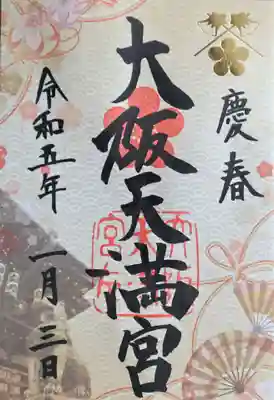 慶春
大阪天満宮
令和五年 一月 三日